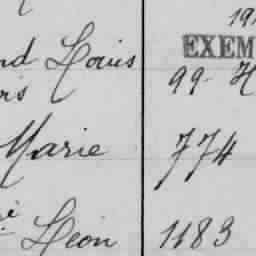 191
nd Louis EXEM
ns 99 H
Marie 774
Léon 1183